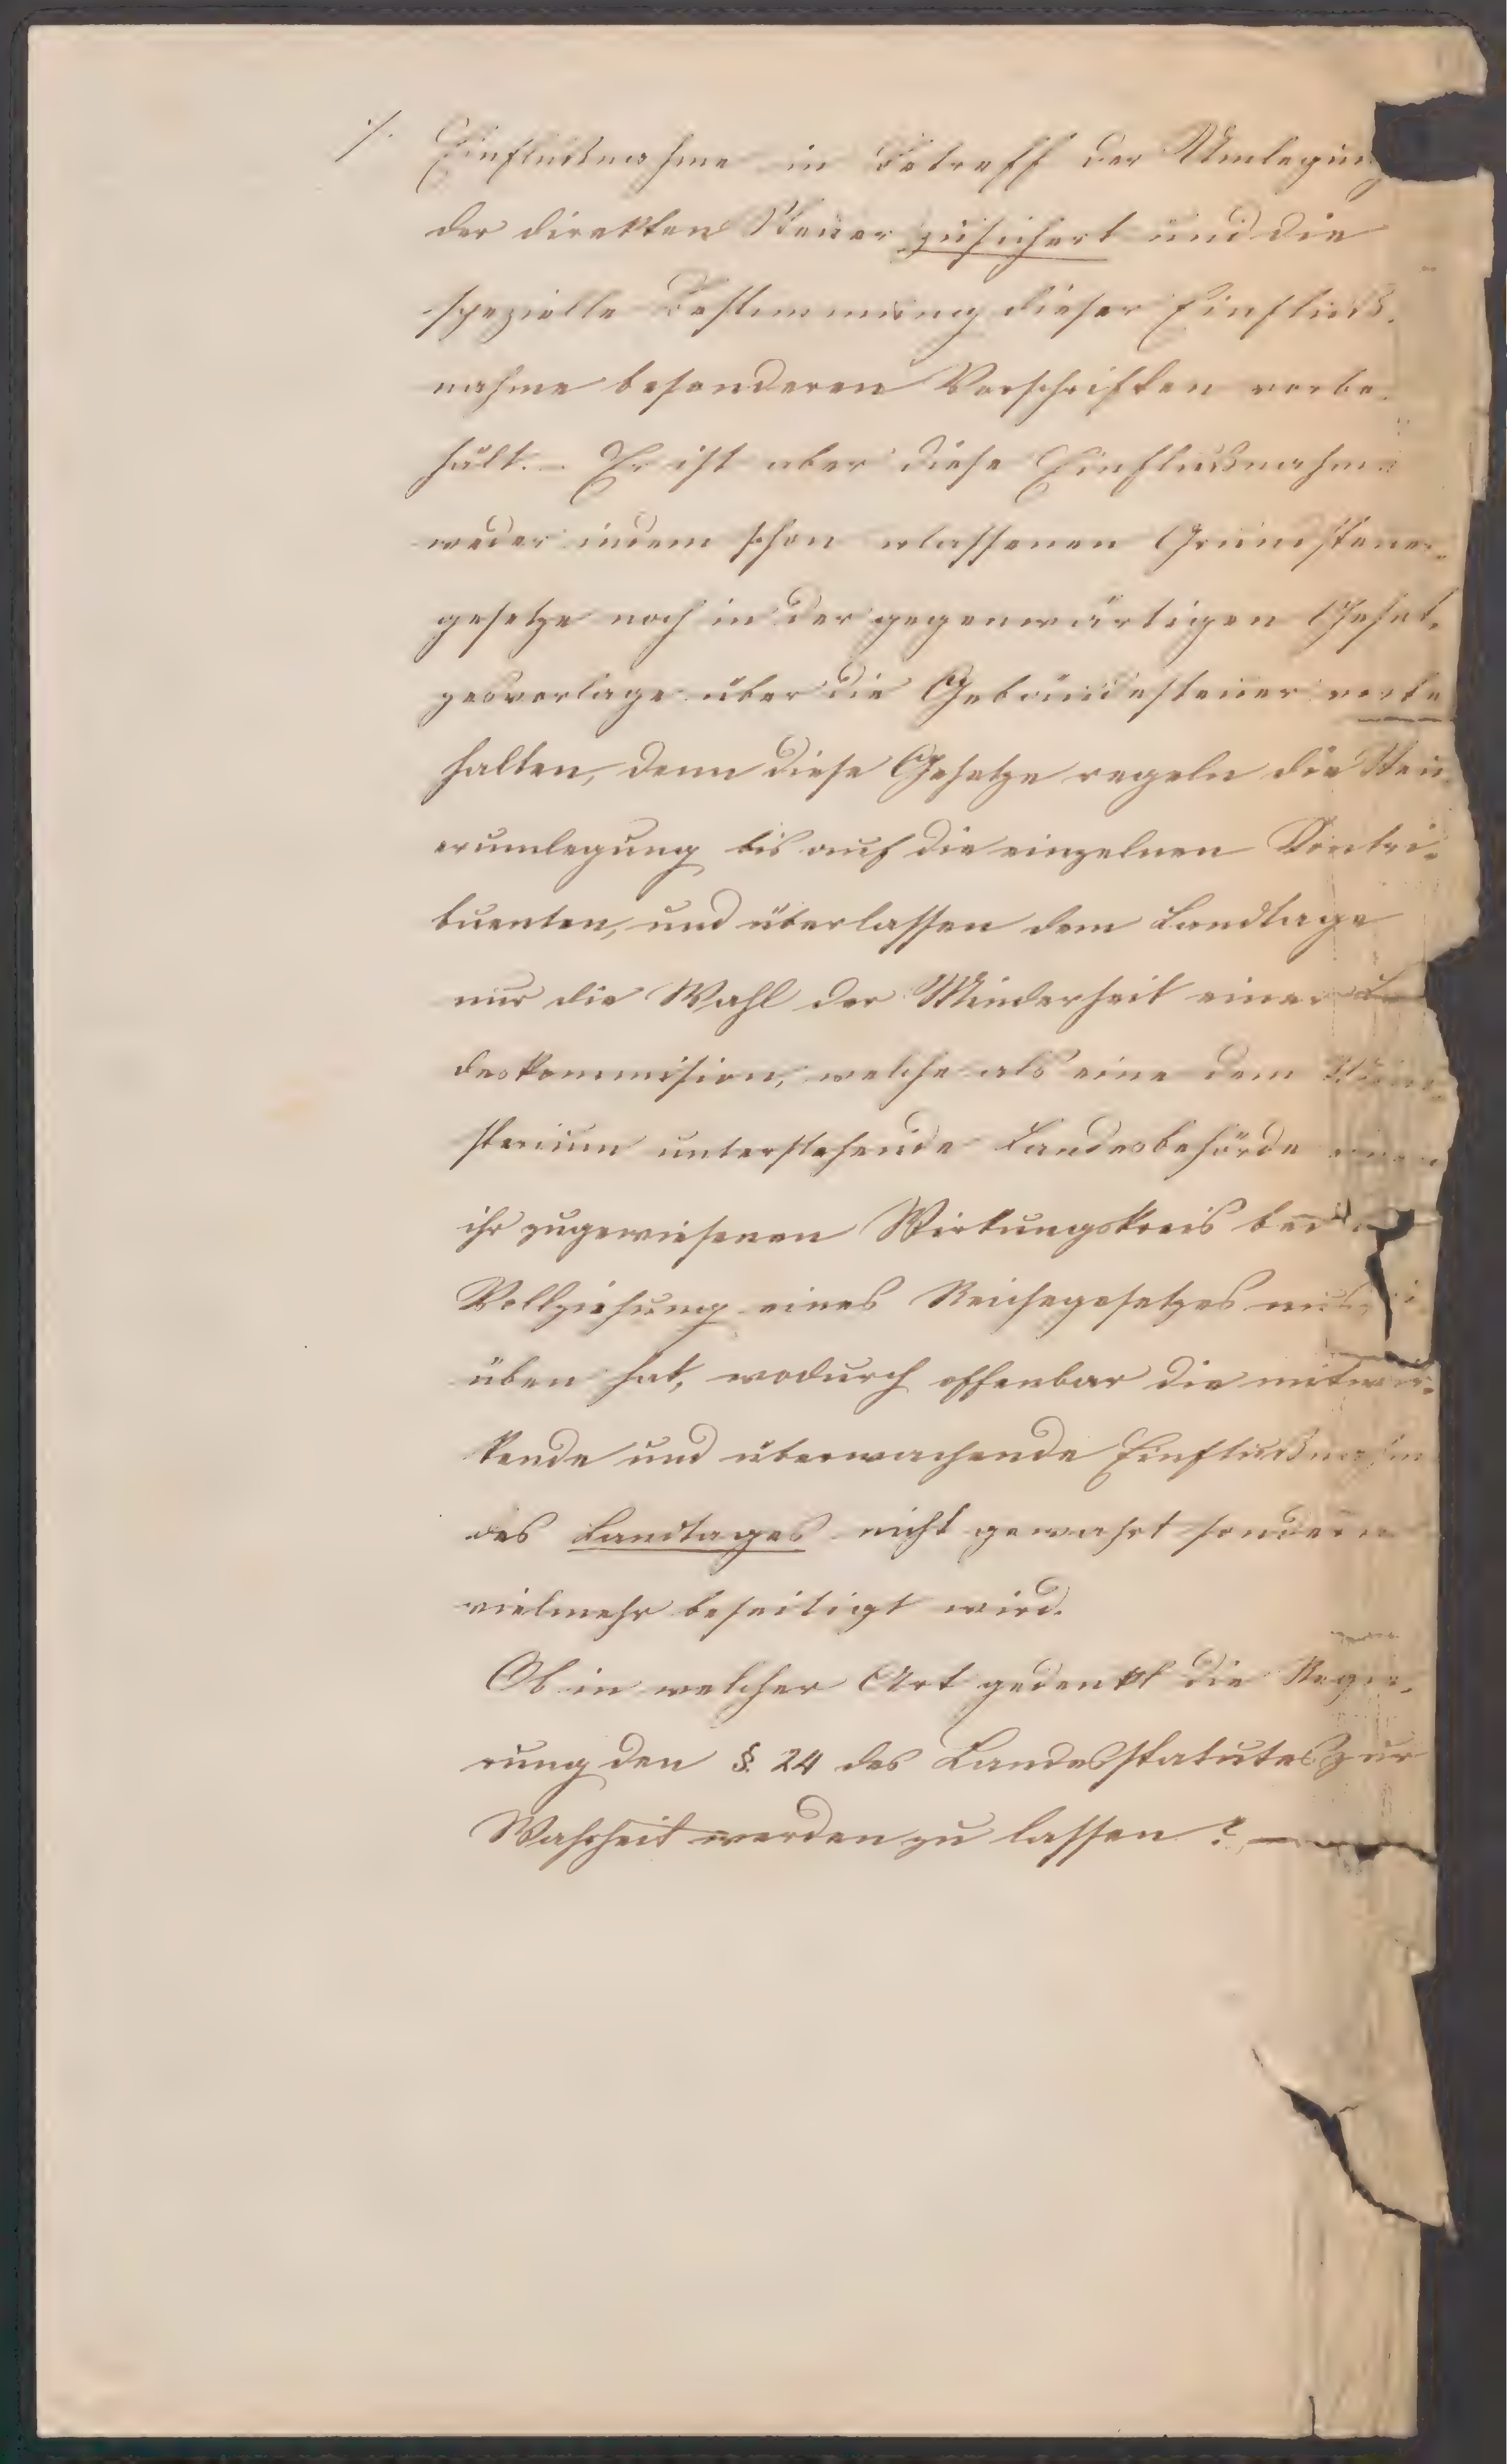 ./. Einflußnahme in Betreff der Umlegung
der direkten Steuer zusichert und die
spezielle Bestimmung dieser Einfluß-
nahme besonderen Vorschriften vorbe-
hält. – Er ist aber diese Einflußnahme
weder in dem schon erlassenen Grundsteuer-
gesetze noch in der gegenwärtigen Geset-
zesvorlage über die Gebäudesteuer vorbe
halten, denn diese Gesetze regeln die Steu-
erumlegung bis auf die einzelnen Contri-
buenten, und überlassen dem Landtage
nur die Wahl der Minderheit einer
deskommision, welche als eine dem
sterium unterstehende Landesbehörde einen
ihr zugewiesenen Wirkungskreis bei
Vollziehung eines Reichsgesetzes
üben hat, wodurch offenbar die mitwir-
kende und überwachende Einflußnahme
des Landtages nicht gewahrt sondern
vielmehr beseitigt wird.
Ob in welcher Art gedenkt die Regie-
rung den §. 24 des Landesstatutes zur
Wahrheit werden zu lassen? —